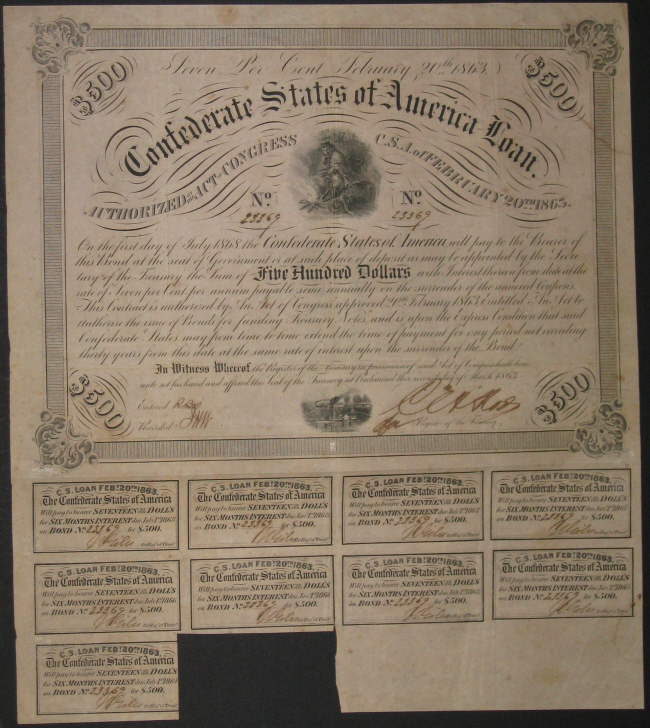 $500
Seven Per Cent February 20th 1863.
$500
Confederate States of America Loan.
AUTHORIZED BY ACT OF CONGRESS C.S.A. of FEBRUARY 20TH 1863.
No. No.
23369 23369
On the first day of July 1868 the Confederate States of America will pay to the Bearer of
this Bond at the seat of Government or at such place of deposit as may be appointed by the Secre
tary of the Treasury the Sum of Five Hundred Dollars with Interest thereon from date at the
rate of Seven per Cent per annum payable semi annually on the surrender of the annexed Coupons.
This Contract is authorized by An Act of Congress approved 20th February 1863 Entitled An Act to
authorize the issue of Bonds for funding Treasury Notes, and is upon the Express Condition that said
Confederate States may from time to time extend the time of payment for any period not exceeding
thirty years from this date at the same rate of interest upon the surrender of the Bond.
In Witness Whereof the Register of the Treasury in pursuance of said Act of Congress hath here
unto set his hand and affixed the Seal of the Treasury at Richmond this March 1863
$500
Entered
Recorded
Register of the Treasury
$500
C.S. LOAN FEB: 20TH 1863.
The Confederate States of America
Will pay to bearer SEVENTEEN DOLLS
for SIX MONTHS INTEREST due
on BOND No. 23369 for $500.
C.S. LOAN FEB: 20TH 1863.
The Confederate States of America
Will pay to bearer SEVENTEEN DOLLS
for SIX MONTHS INTEREST due
on BOND No. 23369 for $500.
C.S. LOAN FEB: 20TH 1863.
The Confederate States of America
Will pay to bearer SEVENTEEN DOLLS
for SIX MONTHS INTEREST due
on BOND No. 23369 for $500.
C.S. LOAN FEB: 20TH 1863.
The Confederate States of America
Will pay to bearer SEVENTEEN DOLLS
for SIX MONTHS INTEREST due
on BOND No. 23369 for $500.
C.S. LOAN FEB: 20TH 1863.
The Confederate States of America
Will pay to bearer SEVENTEEN DOLLS
for SIX MONTHS INTEREST due
on BOND No. 23369 for $500.
C.S. LOAN FEB: 20TH 1863.
The Confederate States of America
Will pay to bearer SEVENTEEN DOLLS
for SIX MONTHS INTEREST due
on BOND No. 23369 for $500.
C.S. LOAN FEB: 20TH 1863.
The Confederate States of America
Will pay to bearer SEVENTEEN DOLLS
for SIX MONTHS INTEREST due
on BOND No. 23369 for $500.
C.S. LOAN FEB: 20TH 1863.
The Confederate States of America
Will pay to bearer SEVENTEEN DOLLS
for SIX MONTHS INTEREST due
on BOND No. 23369 for $500.
C.S. LOAN FEB: 20TH 1863.
The Confederate States of America
Will pay to bearer SEVENTEEN DOLLS
for SIX MONTHS INTEREST due
on BOND No. 23369 for $500.